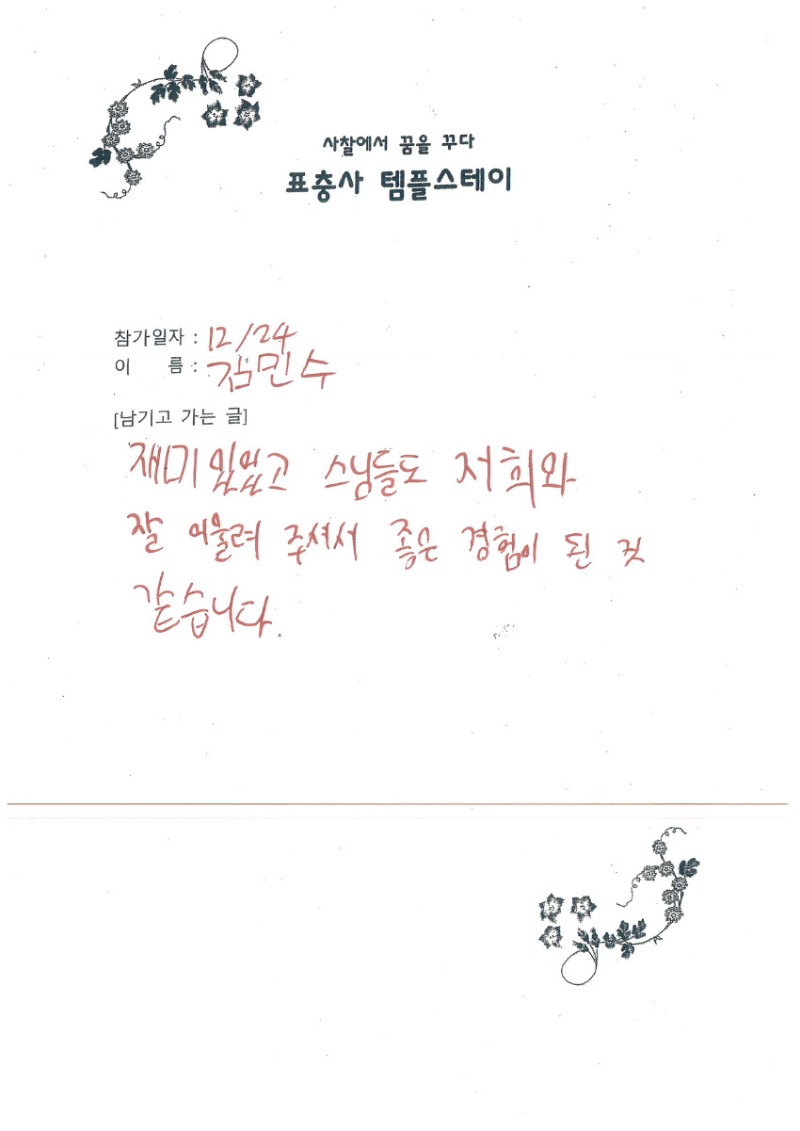 사찰에서 꿈을 꾸다
표충사 템플스테이
참가일자 : 12/24
이 름 : 김민수
[남기고 가는 글]
재미있었고 스님들도 저희와
잘 어울려 주셔서 좋은 경험이 된 것
같습니다.